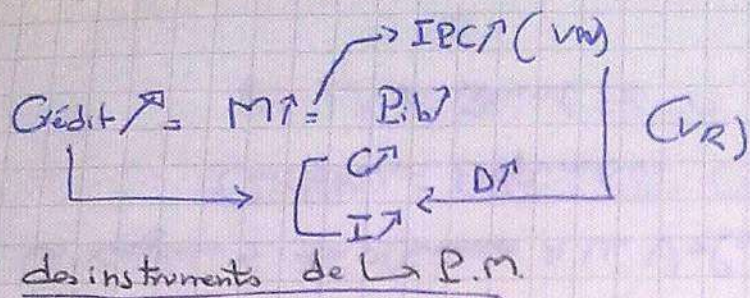 IPC↗ (VN)
Crédit↗ = M↑ = Pib↗ (VR)
C↗ D↗
I↗
des instruments de La P.M.